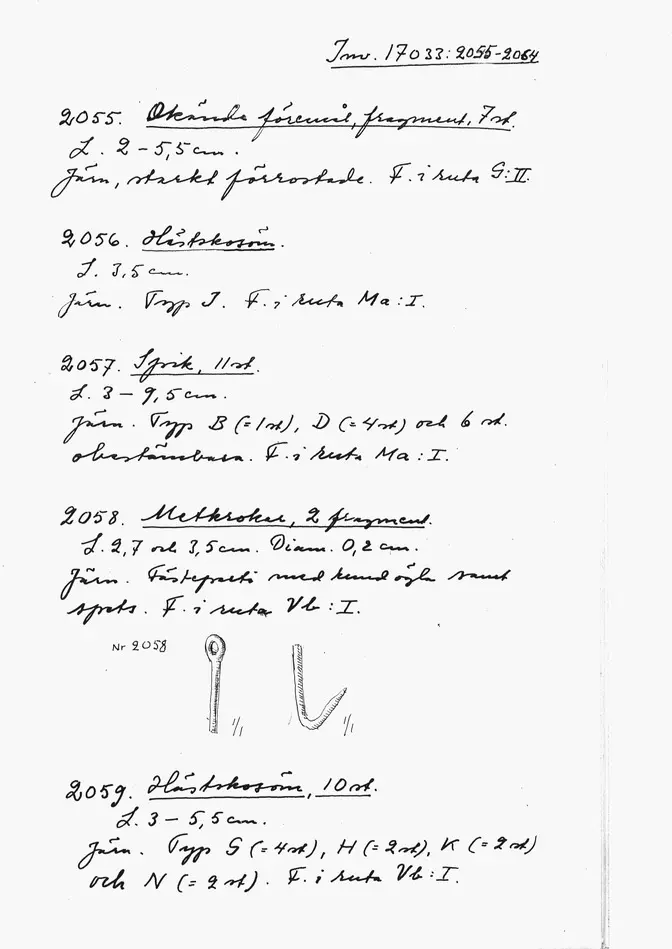 Inv. 17033:2055-2064
2055. Okända föremål, fragment, 7 st.
L. 2 – 5,5 cm.
Järn, starkt förrostade. F. i ruta G:II.
2056. Hästskosöm.
L. 3,5 cm.
Järn. Typ J. F. i ruta Ma:I.
2057. Spik, 11 st.
L. 3 – 9,5 cm.
Järn. Typ B (= 1 st), D (= 4 st) och 6 st.
obestämbara. F. i ruta Ma:I.
2058. Metkrokar, 2 fragment.
L. 2,7 och 3,5 cm. Diam. 0,2 cm.
Järn. Fästeparti med rund ögla samt
spets. F. i ruta Vb:I.
Nr 2058
1/1 1/1
2059. Hästskosöm, 10 st.
L. 3 – 5,5 cm.
Järn. Typ G (= 4 st), H (= 2 st), K (= 2 st)
och N (= 2 st). F. i ruta Vb:I.